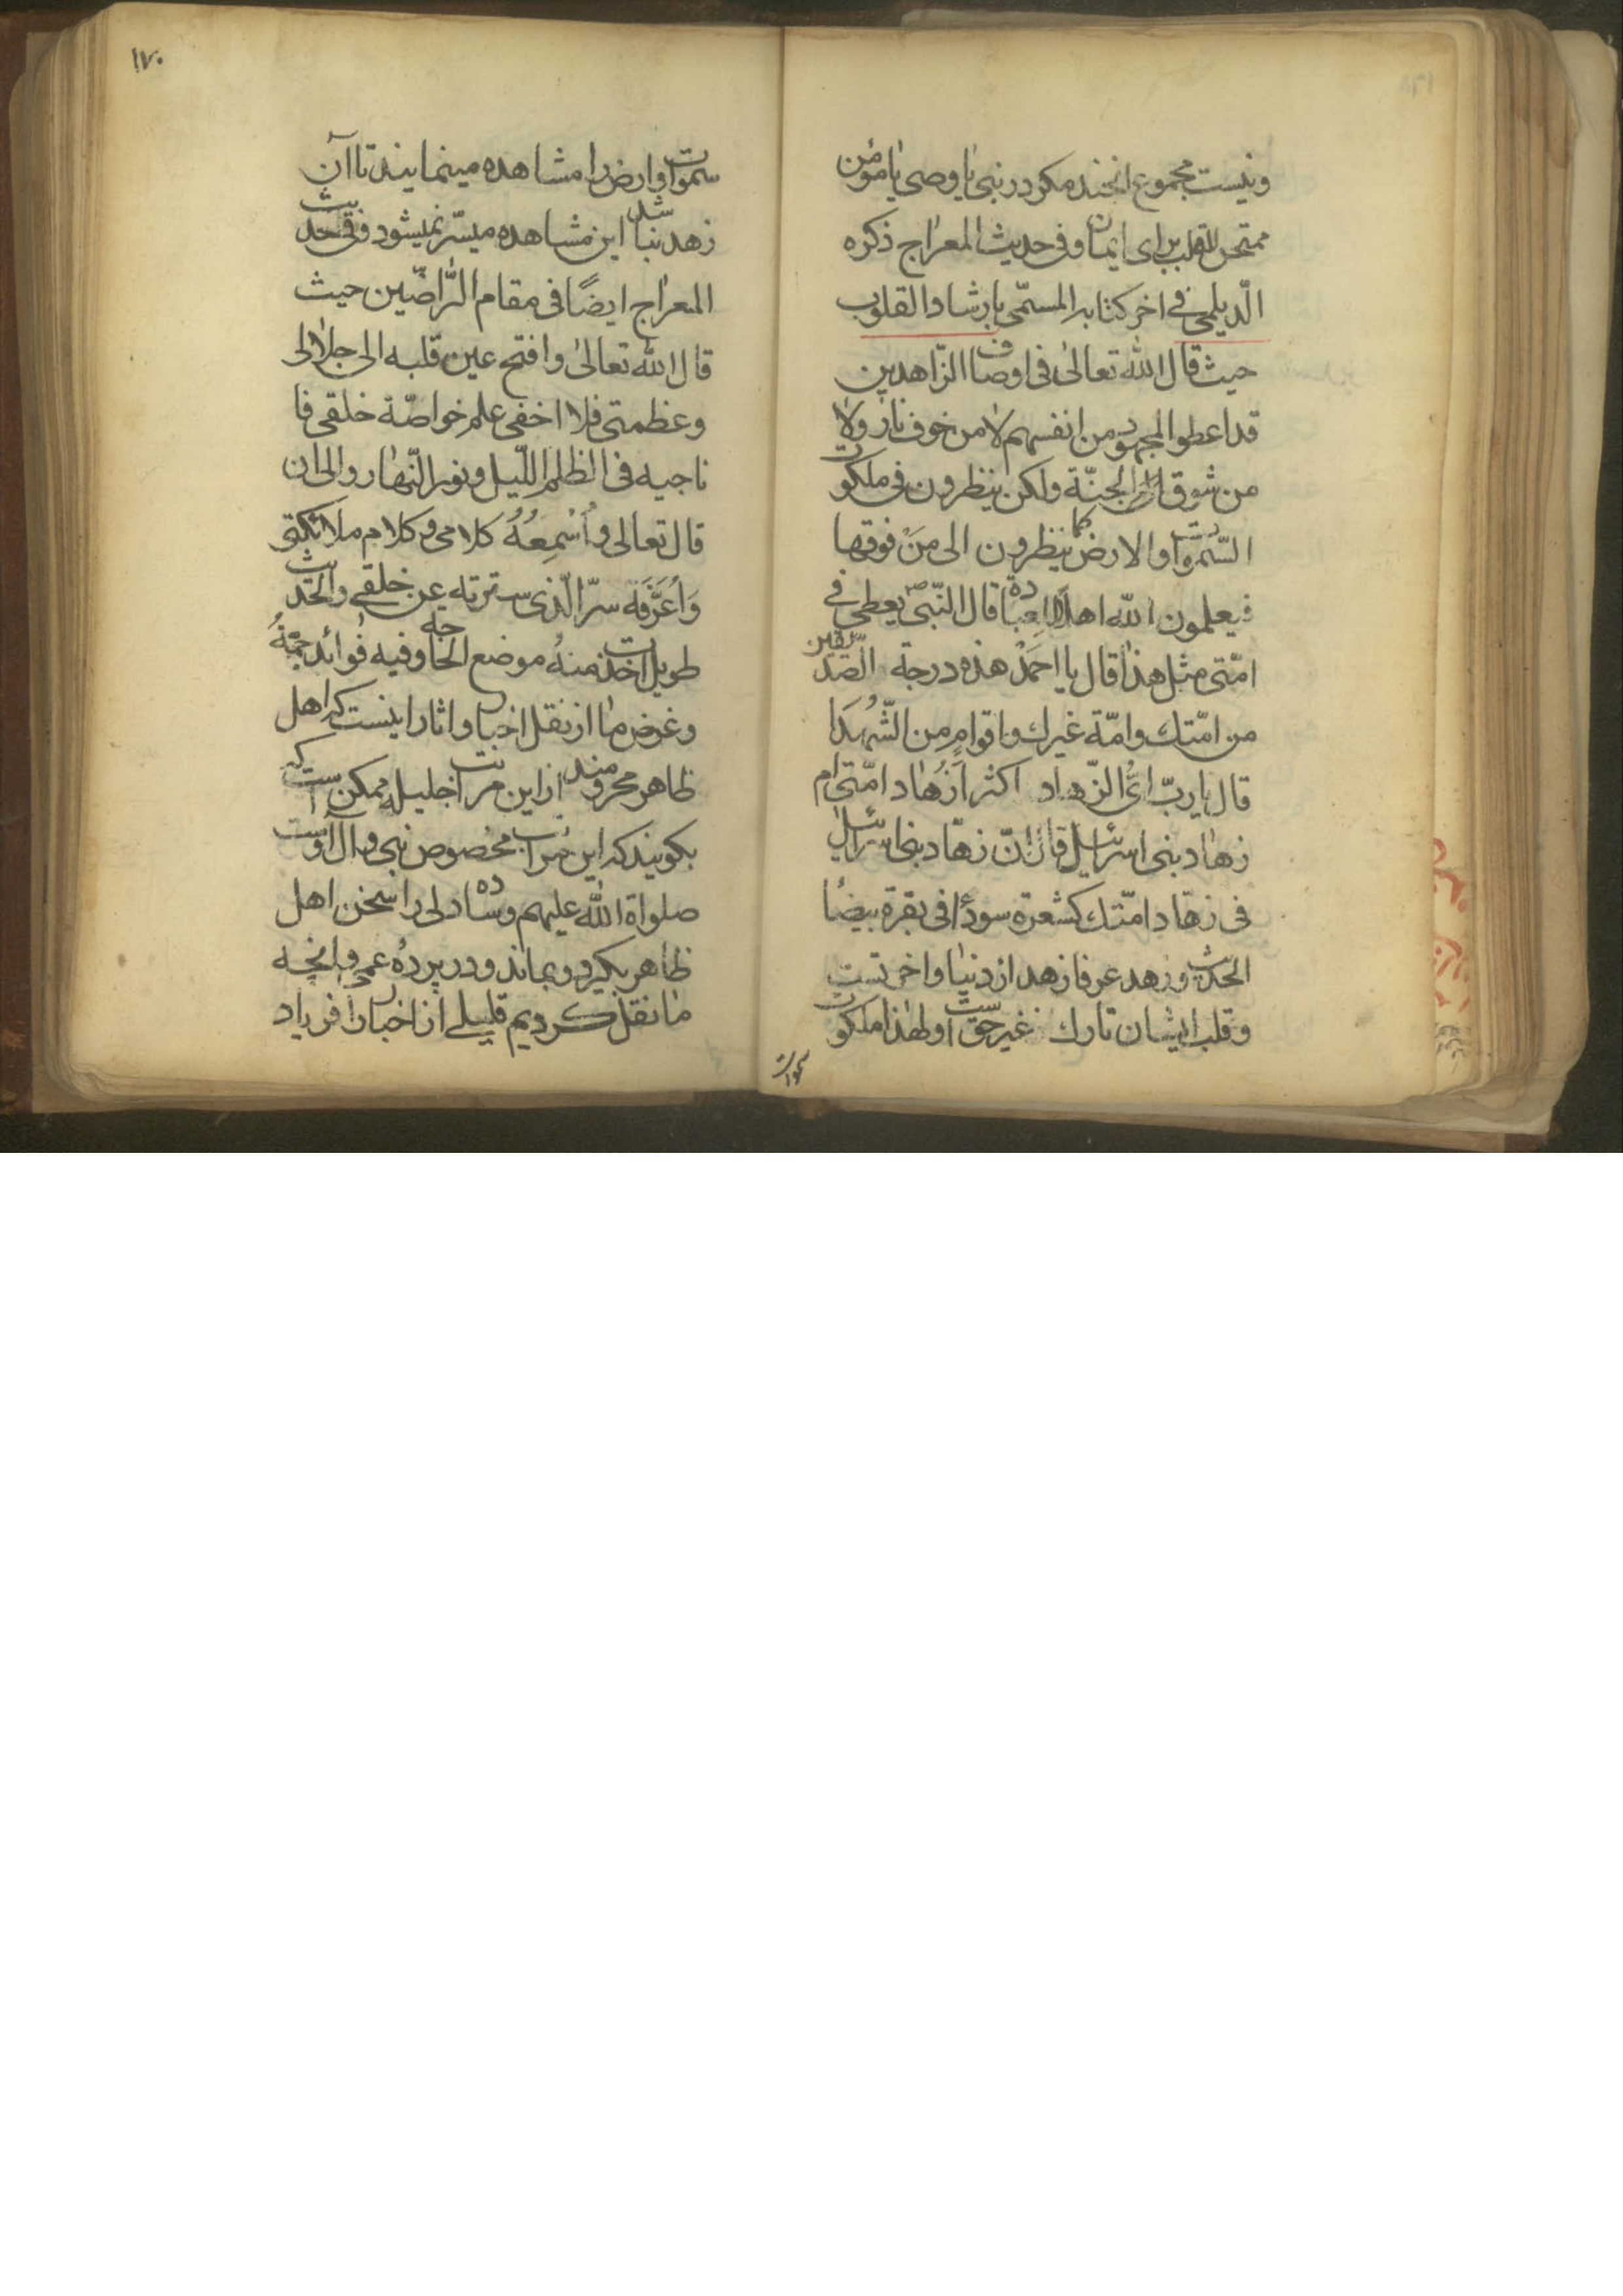 ونیست مجموع انجند مکر در نبی یا وصی یا مؤمن
ممتحن القلب برای ایمان وفی حدیث المعراج ذکره
الدّیلمی فی اخر کتابه المسمّی بارشاد القلوب
حیث قال الله تعالیٰ فی اوصاف الزّاهدین
قد اعطوا المجهود من انفسهم لا من خوف نار ولا
من شوق الی الجنّة ولکن ینظرون فی ملکوت
السّمٰوات والارض کما ینظرون الی مَنْ فوقها
فیعلمون انّ الله اهلًا للعبادة قال النّبی ص یعطی فی
امّتی مثل هذا قال یا احمَدْ هذه درجة الصّدّیقین
من امّتك وامّة غیرك واقوامٍ من الشُّهدَا
قال یا ربّ ایُّ الزّهاد اکثر اَزُهّاد امّتی ام
زهّاد بنی اسرائیل قال انّ زهّاد بنی اسرائیل
فی زهّاد امّتك کشعرة سودٲ فی بقرة بیضٲ
الحدیث وزهد عرفا زهد از دنیا واخرتست
وقلب ایشان تارك غیر حق است ولهٰذا ملکوت
سموات
۱۷۰
سموات وارض را مشاهده مینمایند تا آن
زهد نباشد این مشاهده میسّر نمیشود وفی حدیث
المعراج ایضًا فی مقام الرّاضین حیث
قال الله تعالیٰ وافتح عین قلبه الی جلالی
وعظمتی فلا اخفی علم خواصّة خلقی فا
ناجیه فی الظلم اللّیل ونور النّهار والی ان
قال تعالی وأُسْمِعُهُ کلامی وکلام ملائکتی
وَاُعَرِّفه سرّ الّذی سترته عن خلقی والحدیث
طویل اخذت منهُ موضع الحاجة وفیه فوائد جمّةُ
وغرض ما از نقل اخبار واثار اینست که اهل
ظاهر محرومند از این مراتب جلیله ممکن است که
بکویند که این مراتب مخصوص نبی وآل اوست
صلواة الله علیهم وساده دلی را سخن اهل
ظاهر بکیرد وبماند و در پردهٔ عمی وانچه
ما نقل کردیم قلیلی از اخبار افرباد